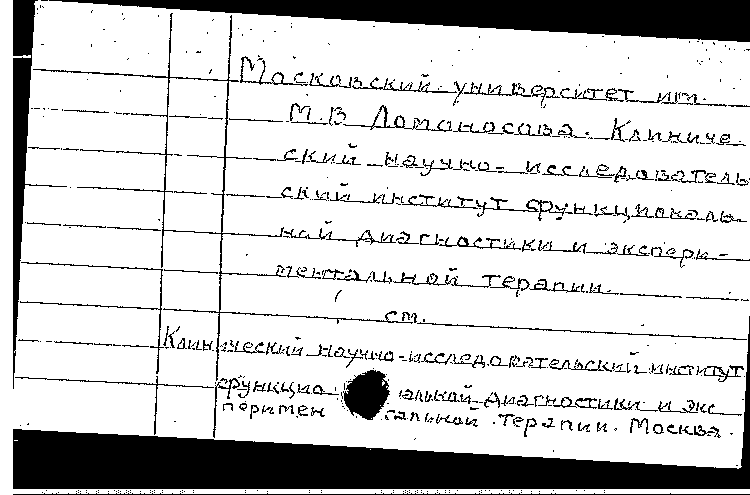 Московский университет им.
М.В Ломоносова. Клиниче-
ский научно-исследователь
ский институт функциональ-
ной диагностики и экспери-
ментальной терапии.
см.
Клинический научно-исследовательский институт
функцио альной диагностики и экс
перимен тальной терапии. Москва.